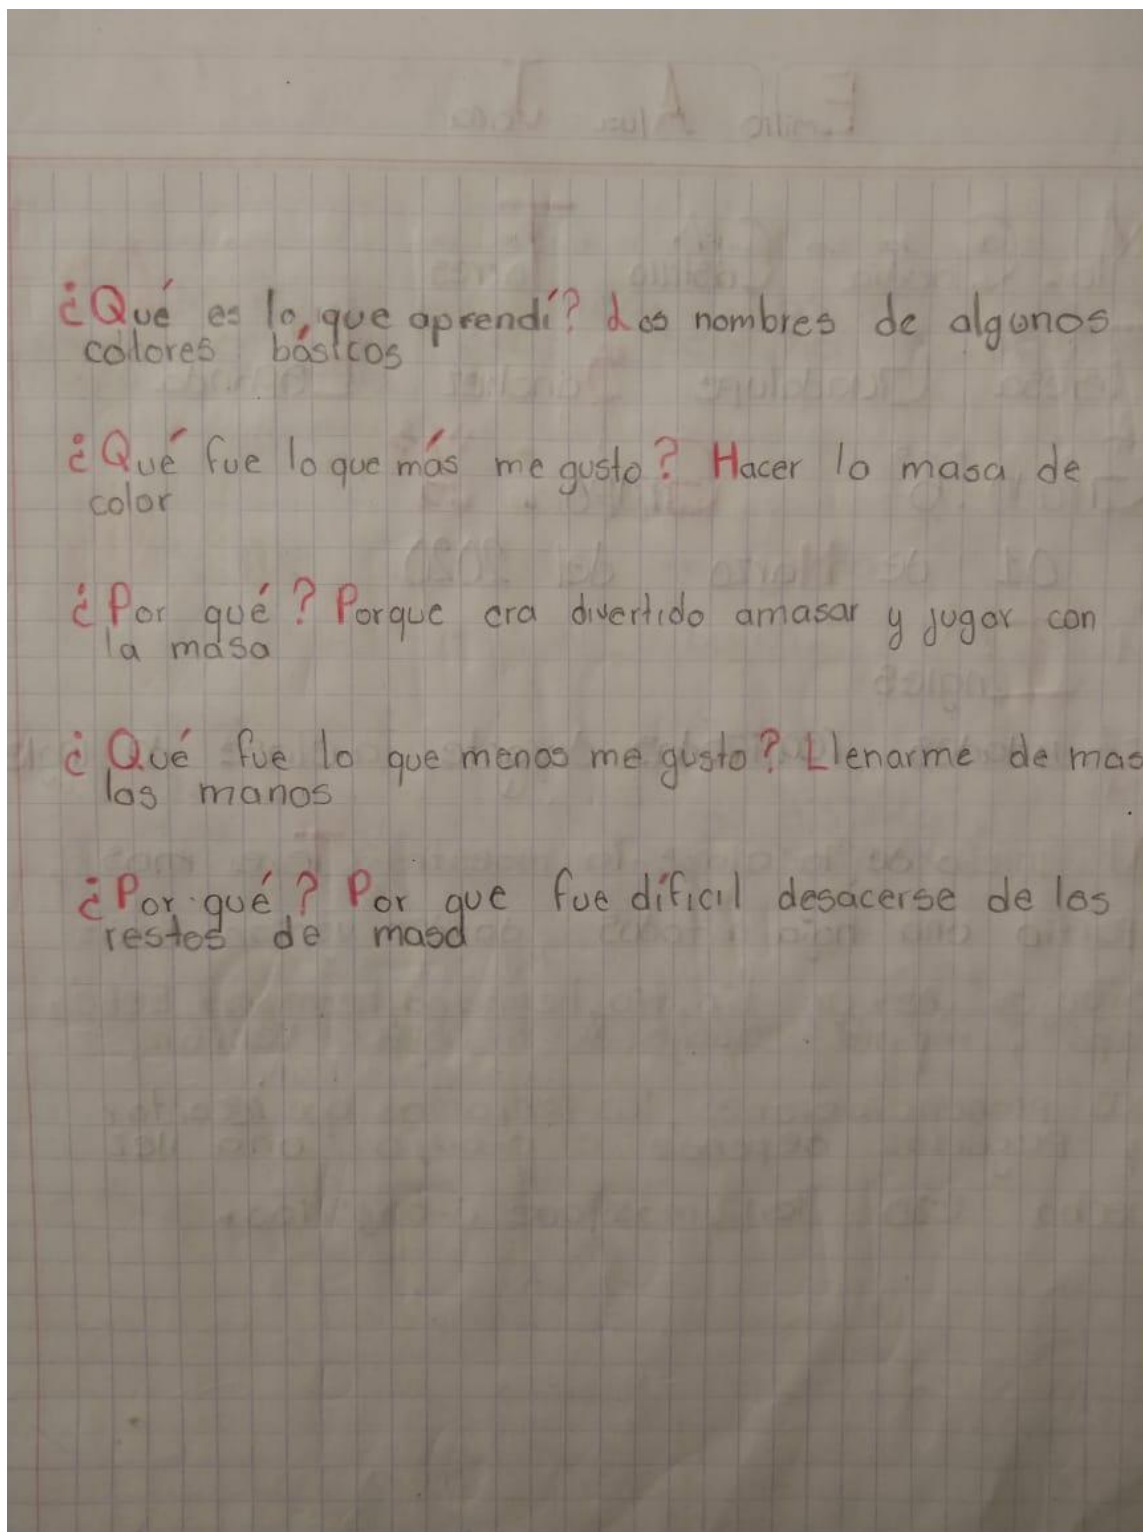 ¿Qué es lo que aprendí? Los nombres de algunos
colores básicos
¿Qué fue lo que más me gusto? Hacer la masa de
color
¿Por qué? Porque era divertido amasar y jugar con
la masa
¿Qué fue lo que menos me gusto? Llenarme de mas
las manos
¿Por qué? Por que fue díficil desacerse de los
restos de masa